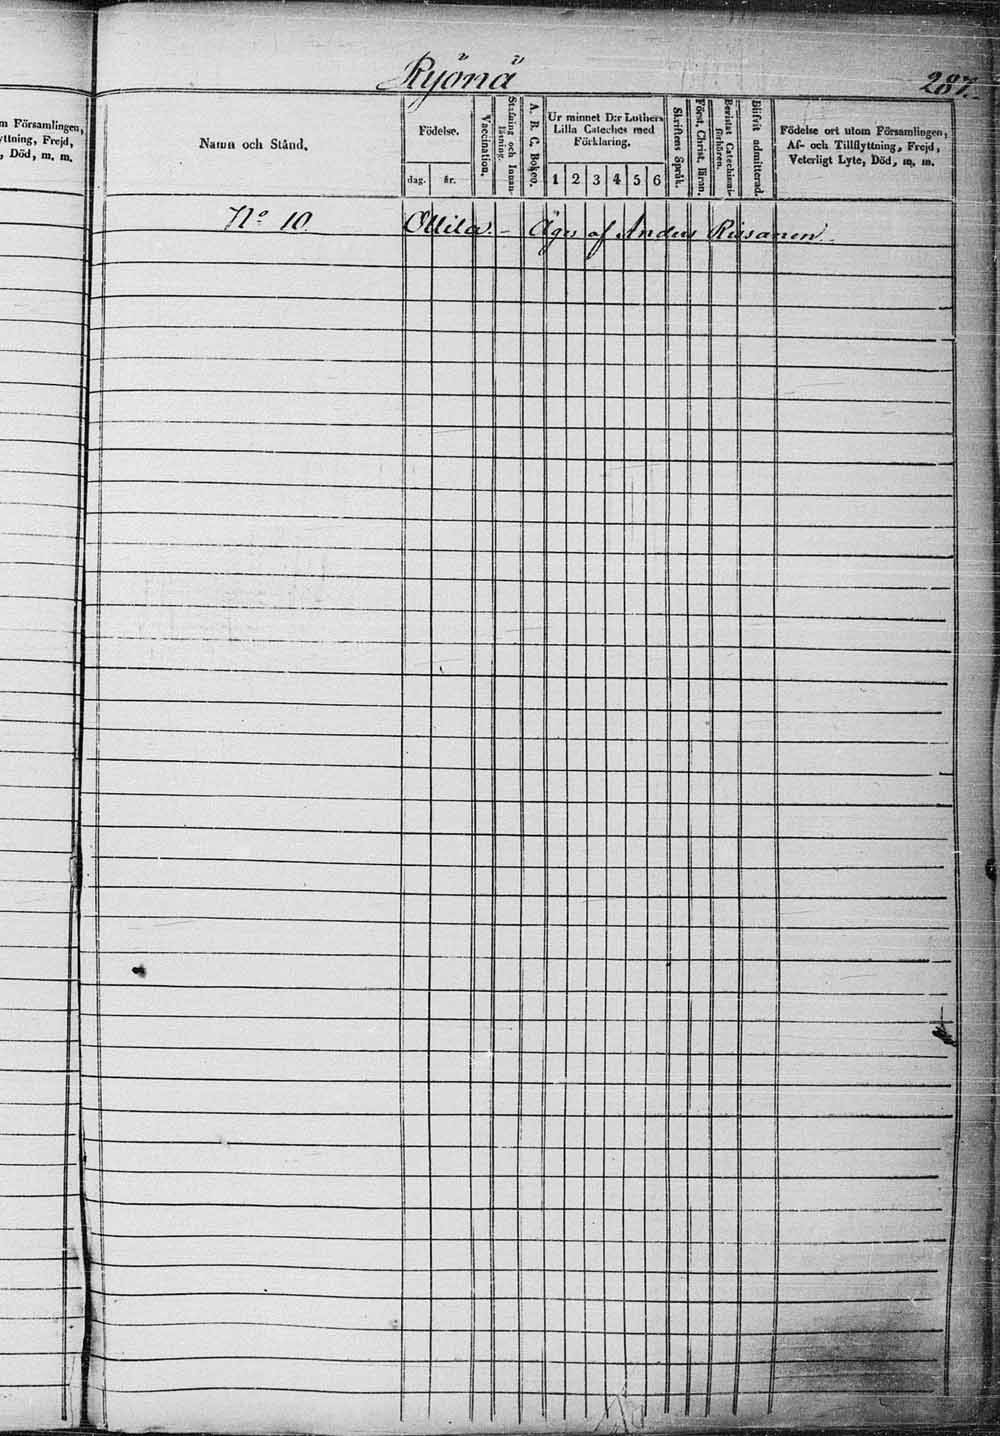 Ryönä
287.
m Församlingen,
yttning, Frejd,
, Död, m. m.
Namn och Stånd.
Födelse.
dag. år.
Vaccination.
Stafning och Innan-
läsning.
A. B. C. Boken.
Ur minnet D:r Luthers
Lilla Cateches med
Förklaring.
1 2 3 4 5 6
Skriftens Språk.
Först. Christ. läran.
Bevistat Catechismi-
förhören.
Blifvit admitterad.
Födelse ort utom Församlingen,
Af- och Tillflyttning, Frejd,
Veterligt Lyte, Död, m. m.
No 10 Ollila. – Äges af Anders Rissanen.